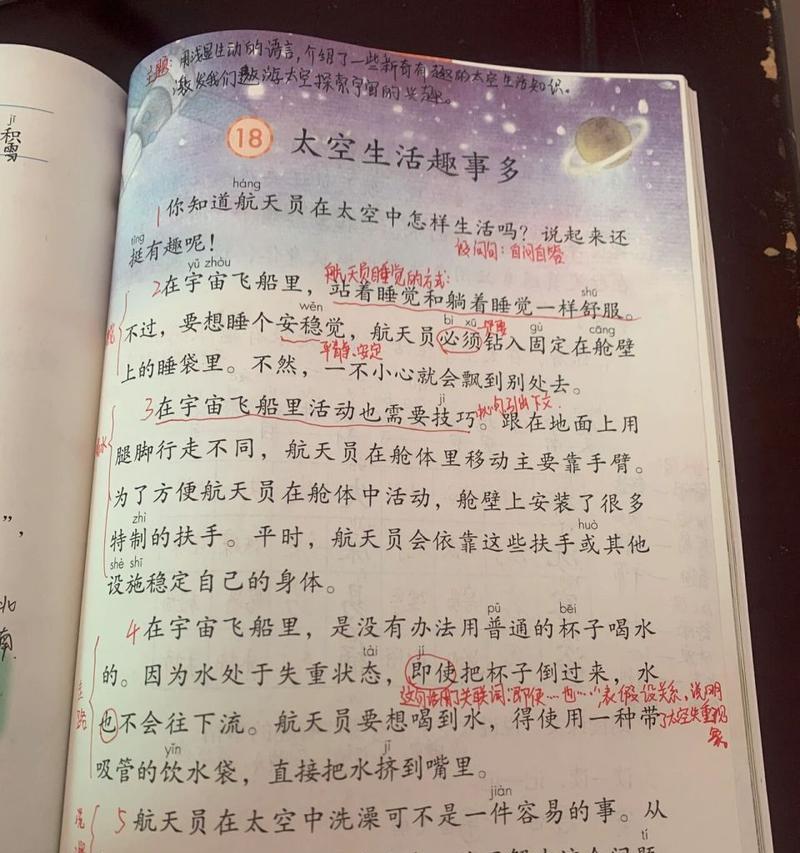 主题：用浅显生动的语言，介绍了一些新奇有趣的太空生活知识。
激发我们遨游太空探索宇宙的兴趣。
jī
积
雪
18 太空生活趣事多
háng
1 你知道航天员在太空中怎样生活吗？说起来还
tǐng
挺有趣呢！
设问句：自问自答
yǔ zhòu
航天员睡觉的方式：
2 在宇宙飞船里，站着睡觉和躺着睡觉一样舒服。
wěn shū
不过，要想睡个安稳觉，航天员必须钻入固定在舱壁
bì xū gù cāng
平静、安定
上的睡袋里。不然，一不小心就会飘到别处去。
jì
3 在宇宙飞船里活动也需要技巧。跟在地面上用
引出下文
腿脚行走不同，航天员在舱体里移动主要靠手臂。
为了方便航天员在舱体中活动，舱壁上安装了很多
zhì huò
特制的扶手。平时，航天员会依靠这些扶手或其他
shè shī
设施稳定自己的身体。
pǔ bēi
4 在宇宙飞船里，是没有办法用普通的杯子喝水
tài jí
的。因为水处于失重状态，即使把杯子倒过来，水
这句话用了关联词：“即使…也…”表假设关系，说明
了太空失重现
象
也不会往下流。航天员要想喝到水，得使用一种带
yǐn jǐ
吸管的饮水袋，直接把水挤到嘴里。
jiàn
5 航天员在太空中洗澡可不是一件容易的事。从
tí